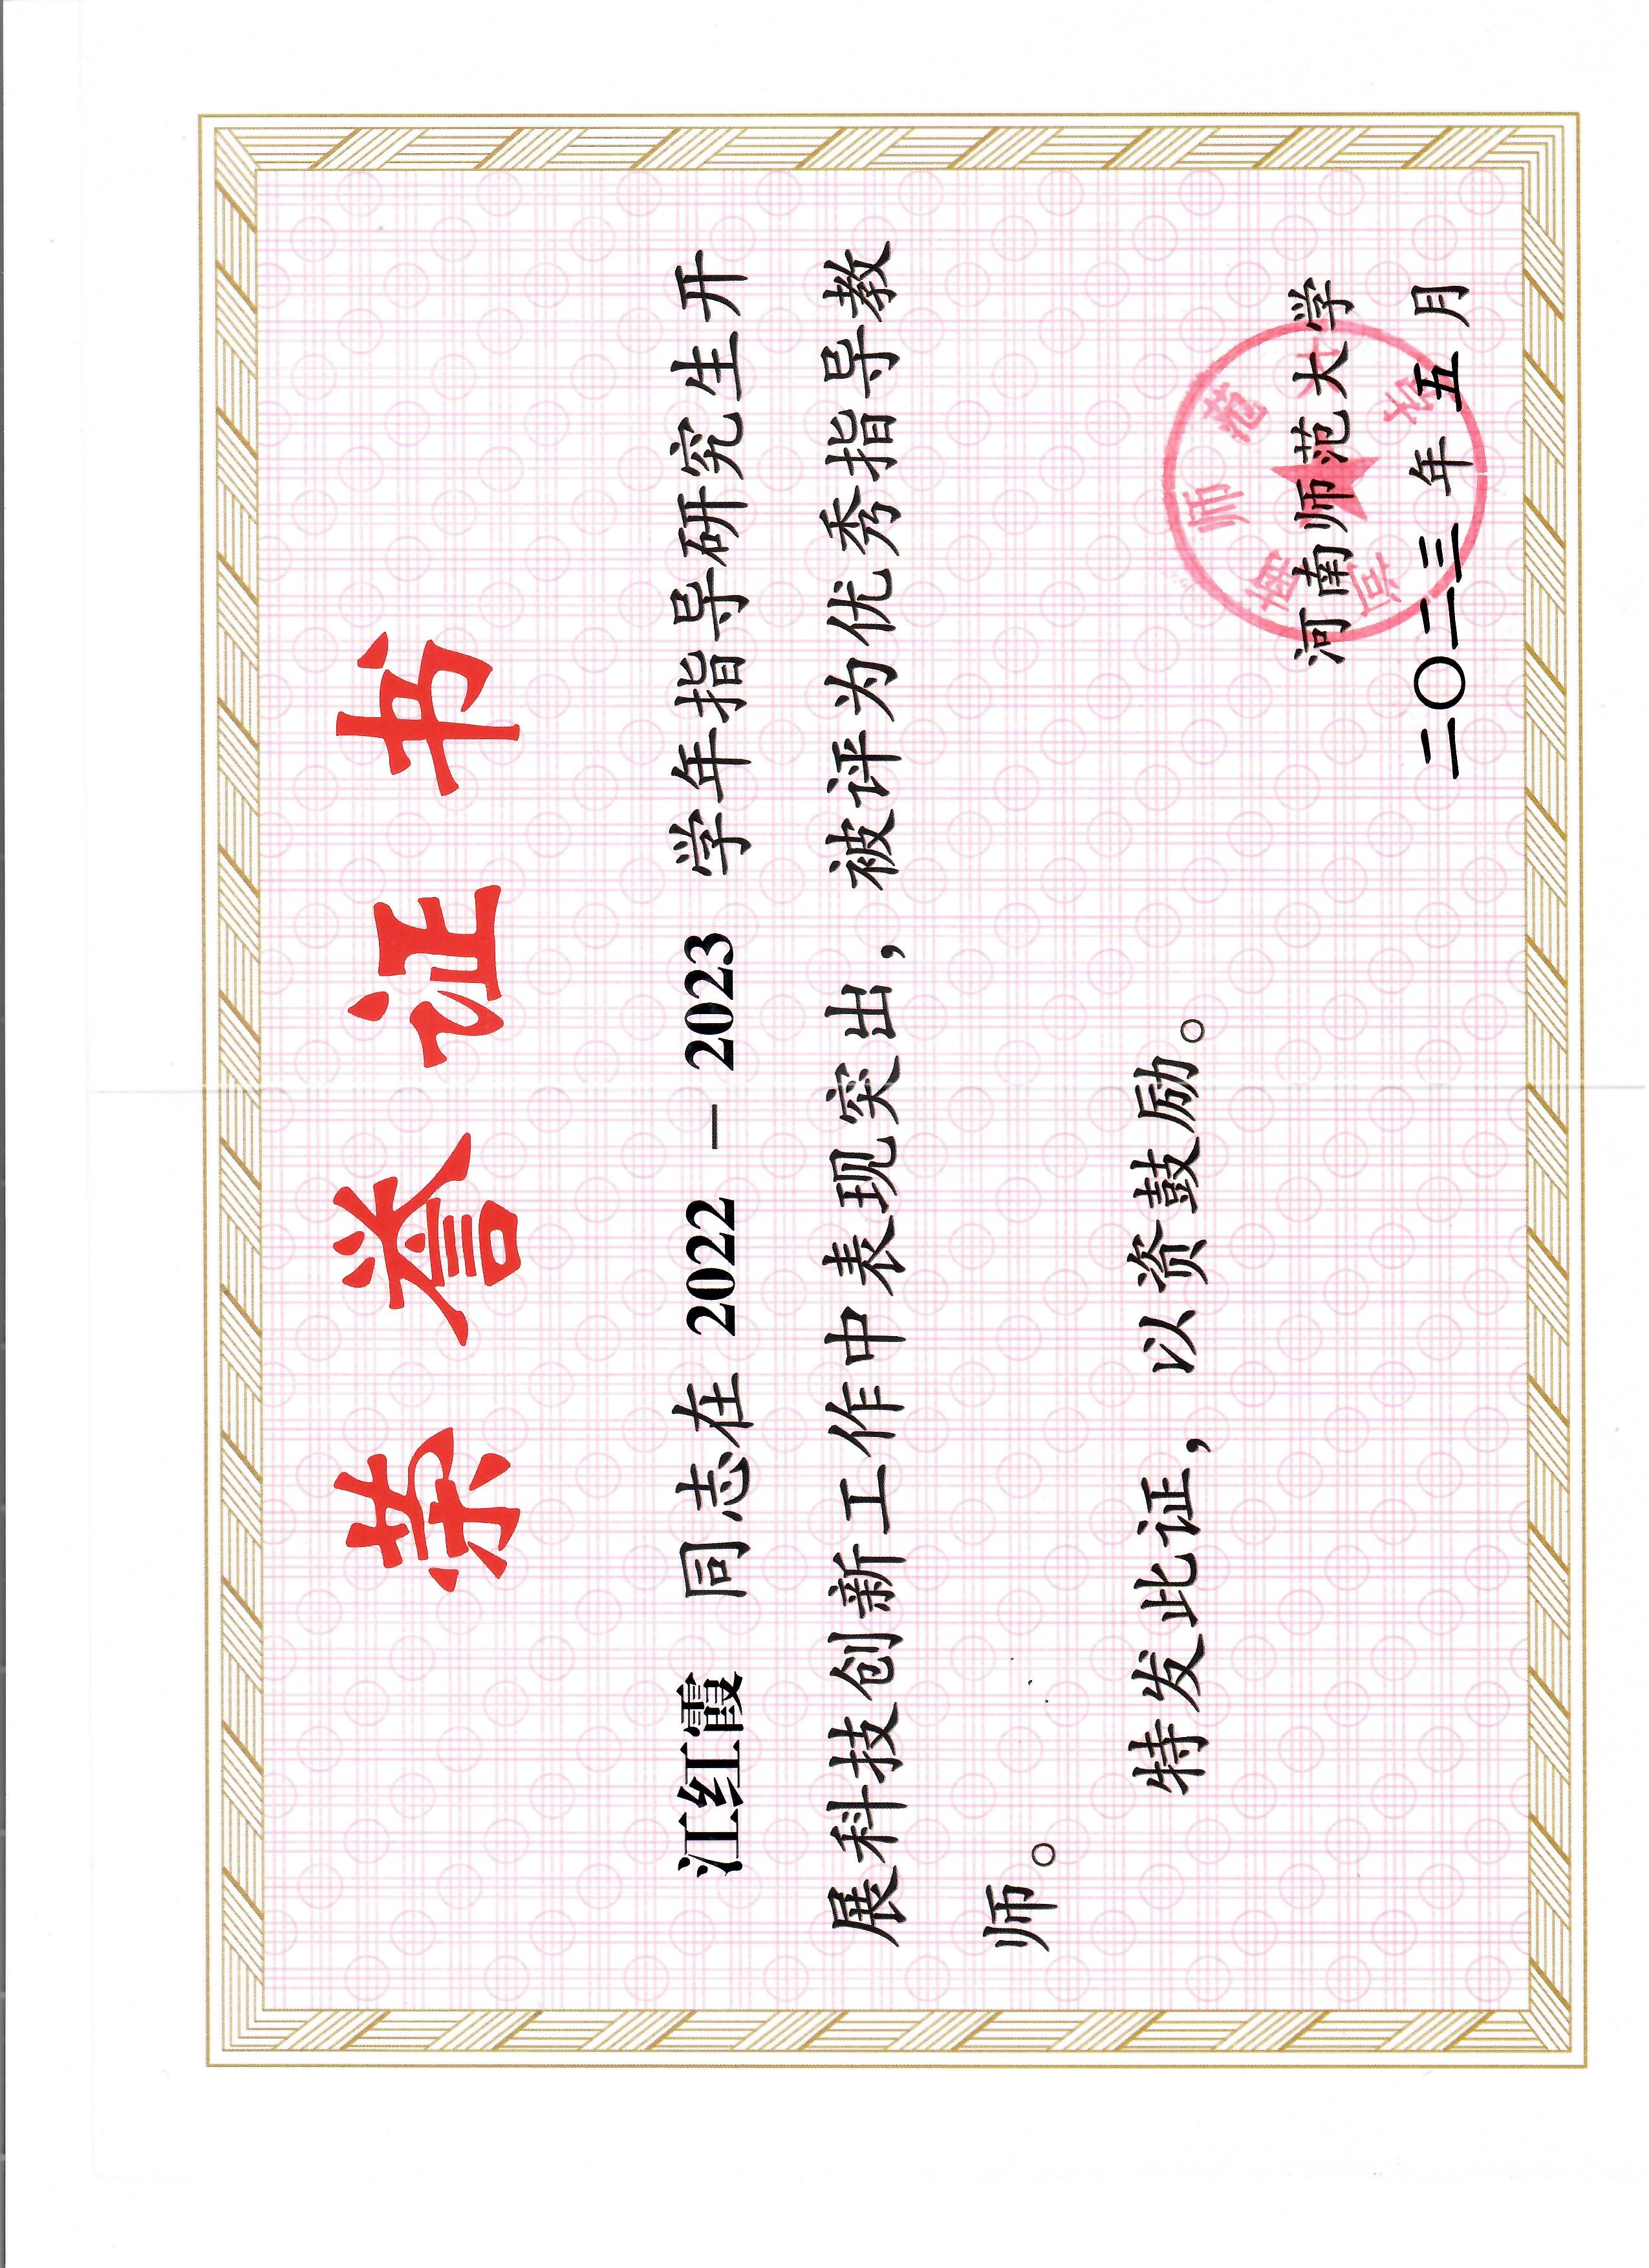 荣誉证书
江红霞 同志在 2022 — 2023 学年指导研究生开
展科技创新工作中表现突出，被评为优秀指导教
师。
特发此证，以资鼓励。
河南师范大学
二〇二三年五月
河南师范大学